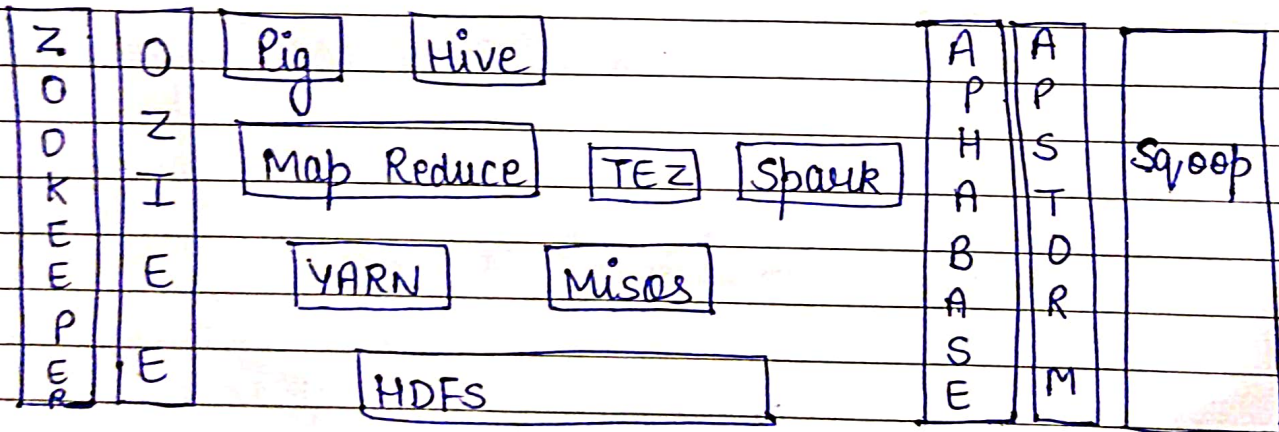 ZOOKEEPER
OZIEE
Pig Hive
Map Reduce TEZ Spark
YARN Misos
HDFS
APHABASE
APSTORM
Sqoop